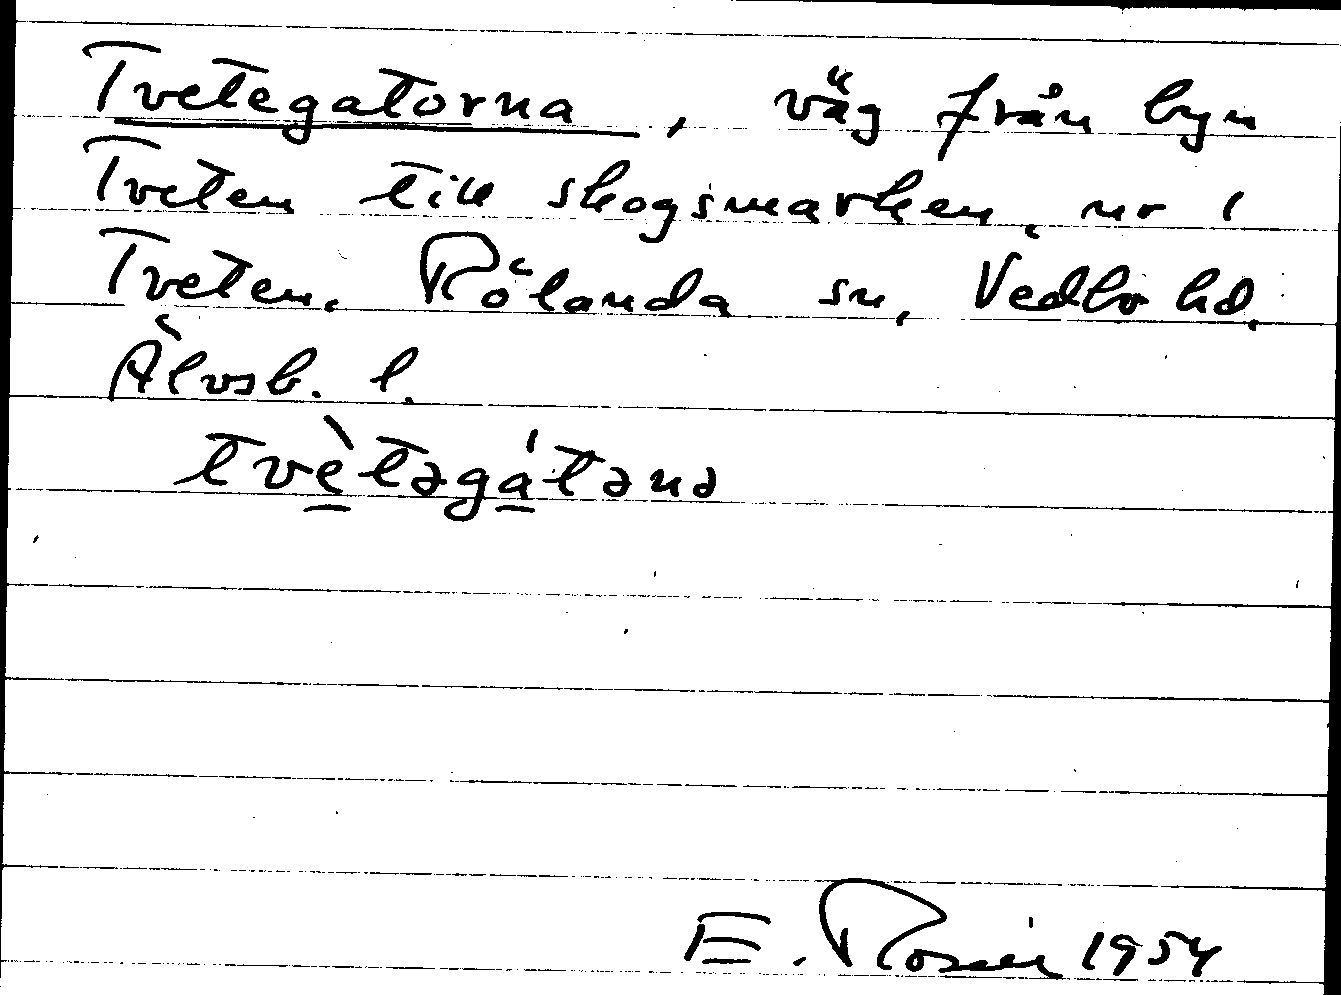 Tvetegatorna, väg från byn
Tveten till skogsmarken, nr 1
Tveten. Rölanda sn, Vedbo hd,
Älvsb. l.
tvètəgátəna
E. Rosén 1954